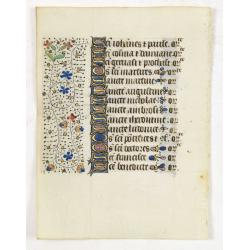 Sci iohānes et paule. or
Sci cosma et damiane or
Sci geruasi et prothasi or
Os sci martires. or
Sancte martine. or
Sancte augustine or
Sancte nicholae or
Sancte ambrosi or
Sancte iheronime or
Sancte ludouice or
Os sci pōtifices et or
Os sci doctores or
Sci francisce or
Sci benedicte or